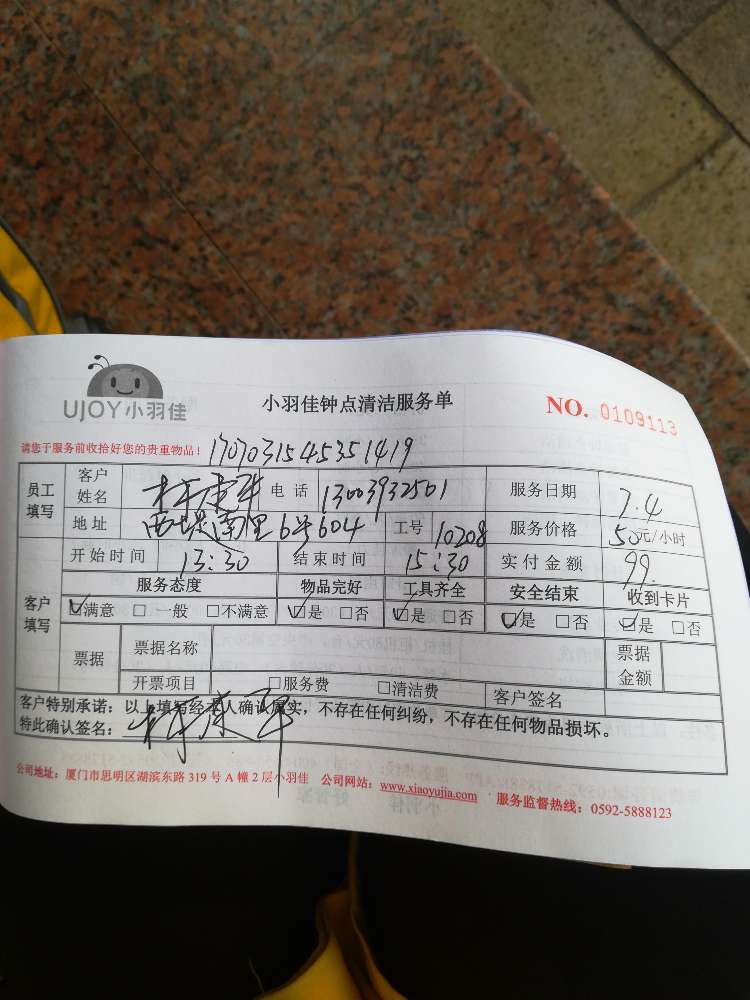 UJOY小羽佳
小羽佳钟点清洁服务单
NO. 0109113
请您于服务前收拾好您的贵重物品!
1707031545351419
员工填写 客户姓名 电话 13003932501 服务日期 7.4
地址 西堤南里6号604 工号 10208 服务价格 50元/小时
开始时间 13:30 结束时间 15:30 实付金额 99.
客户填写 服务态度 物品完好 工具齐全 安全结束 收到卡片
☑满意 □一般 □不满意 ☑是 □否 ☑是 □否 ☑是 □否 ☑是 □否
票据 票据名称 票据金额
开票项目 □服务费 □清洁费 客户签名
客户特别承诺:以上填写经本人确认属实,不存在任何纠纷,不存在任何物品损坏。
特此确认签名:
公司地址:厦门市思明区湖滨东路 319 号 A 幢 2 层小羽佳 公司网站:www.xiaoyujia.com 服务监督热线:0592-5888123